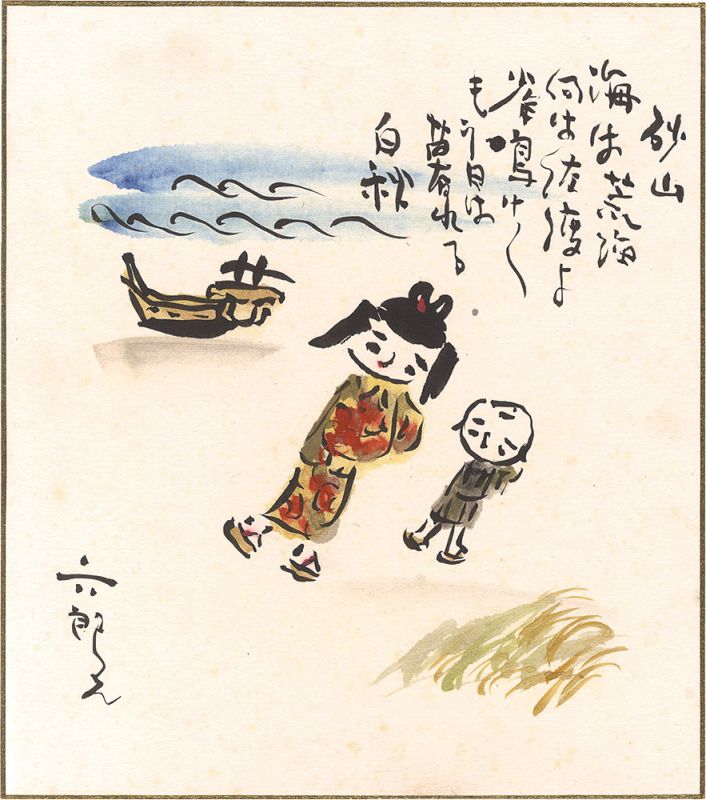 砂山
海は荒海
向は佐渡よ
雀鳴け〱
もう日は
暮れる
白秋
六郎